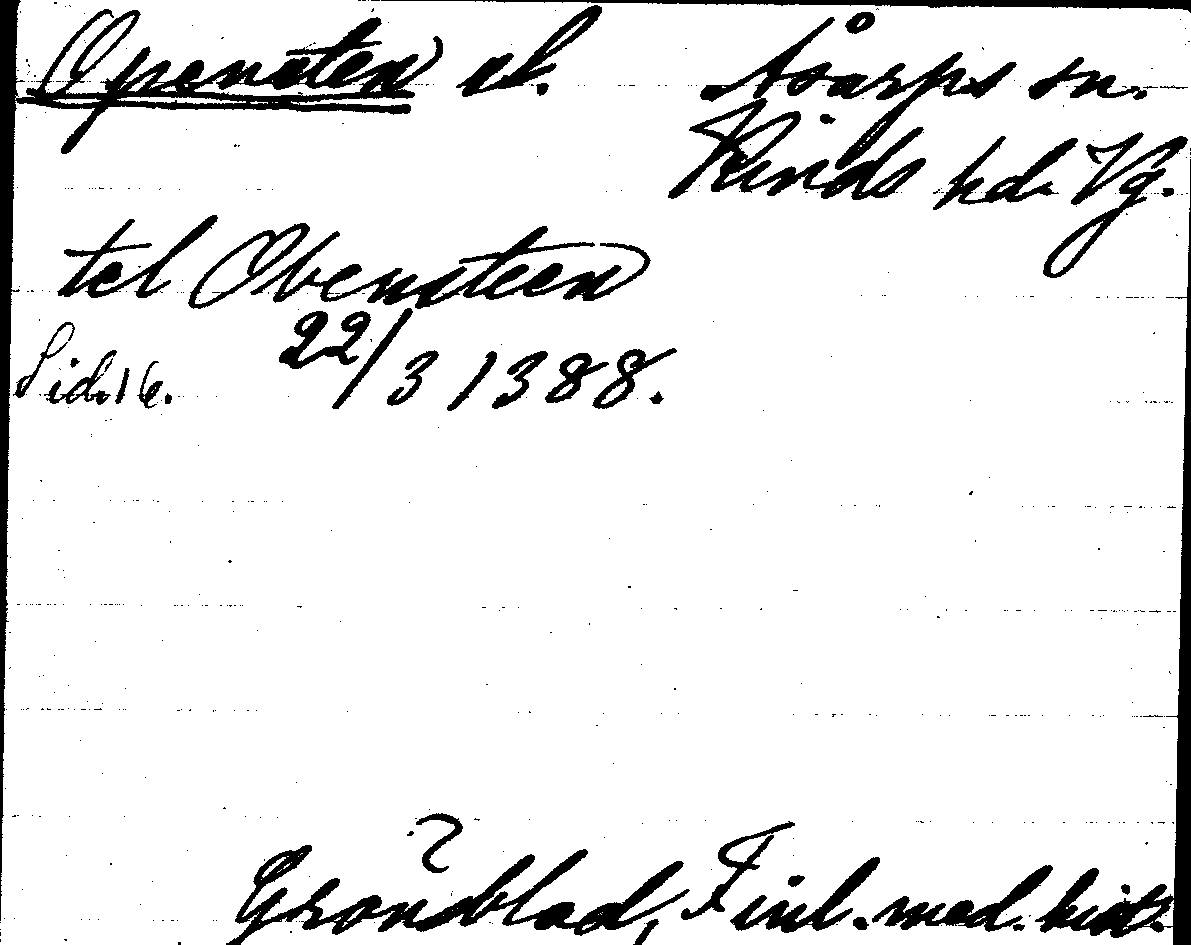 Opensten sl. Åsarps sn.
Kinds hd. Vg.
tel Obensteen
Sid. 16. 22/3 1388.
Grönblad, Finl. med. hist.